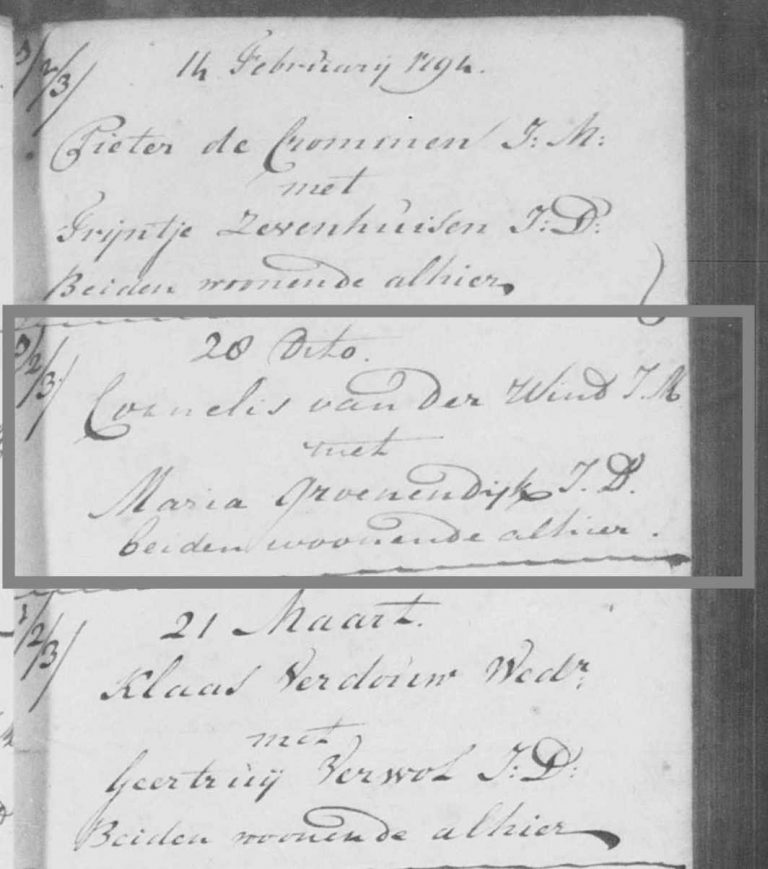 14 Februarij 1794.
Pieter de Crommen J: M:
met
Trijntje Zevenhuisen J: D:
Beiden woonende alhier
28 Dito.
Cornelis van der Wind J. M
met
Maria Groenendijk J. D.
beiden woonende alhier.
21 Maart.
Klaas Verdouw Wedr.
met
Geertruij Verwol J: D:
Beiden woonende alhier